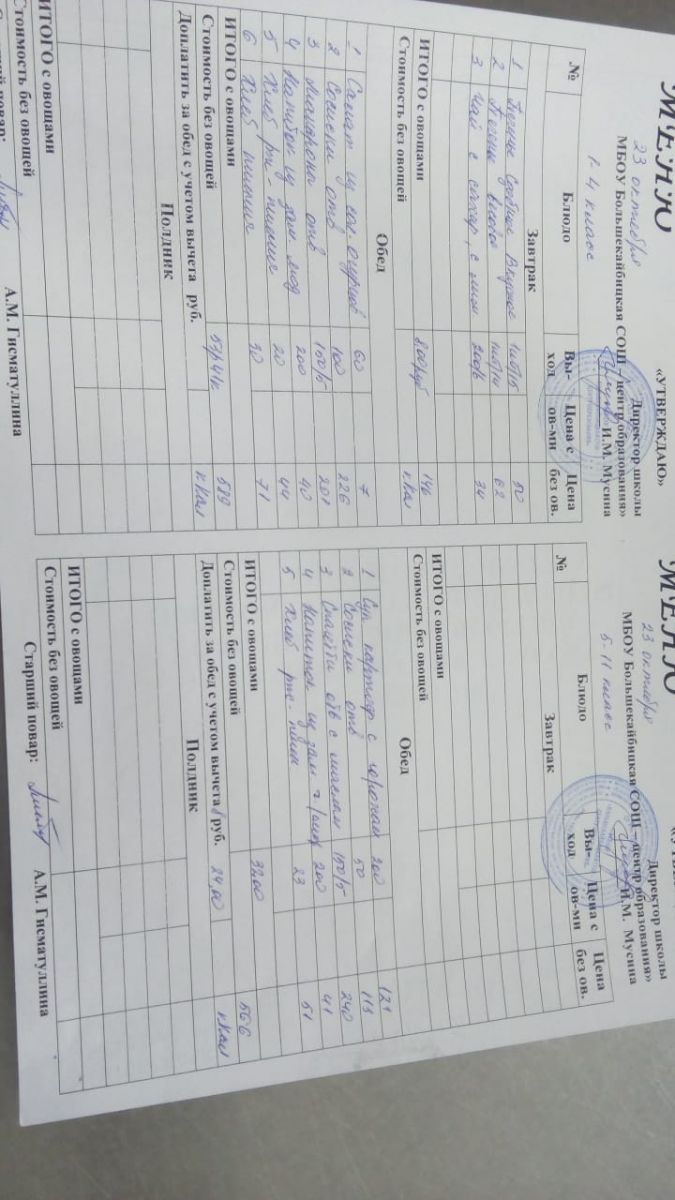 «УТВЕРЖДАЮ»
Директор школы
МБОУ Большекайбицкая СОШ – центр образования»
И.М. Мусина
МЕНЮ
23 октября
1-4 класс
№ Блюдо Вы-ход Цена с ов-ми Цена без ов.
Завтрак
1 50
2 62
3 Чай с сахар, с лим 200/6 34
ИТОГО с овощами 8.00руб 146
Стоимость без овощей ккал
Обед
1 Салат из огурцов 60 7
2 Сосиски отв 100 226
3 Макароны отв 150/5 201
4 Напиток из 200 40
5 Хлеб рж-пшен 20 44
6 Хлеб пшенич 30 71
ИТОГО с овощами
Стоимость без овощей 53р41к 589
Доплатить за обед с учетом вычета руб. ккал
Полдник
ИТОГО с овощами
Стоимость без овощей
Старший повар: А.М. Гисматуллина
Директор школы
МБОУ Большекайбицкая СОШ – центр образования»
И.М. Мусина
МЕНЮ
23 октября
5-11 класс
№ Блюдо Вы-ход Цена с ов-ми Цена без ов.
Завтрак
ИТОГО с овощами
Стоимость без овощей
Обед
1 Суп картоф с горохом 200 121
2 Сосиски отв 50 113
3 Спагетти отв с маслом 150/5 240
4 Напиток из 200 41
5 Хлеб рж-пшен 23 51
ИТОГО с овощами 32.00
Стоимость без овощей 566
Доплатить за обед с учетом вычета руб. 24,00 ккал
Полдник
ИТОГО с овощами
Стоимость без овощей
Старший повар: А.М. Гисматуллина